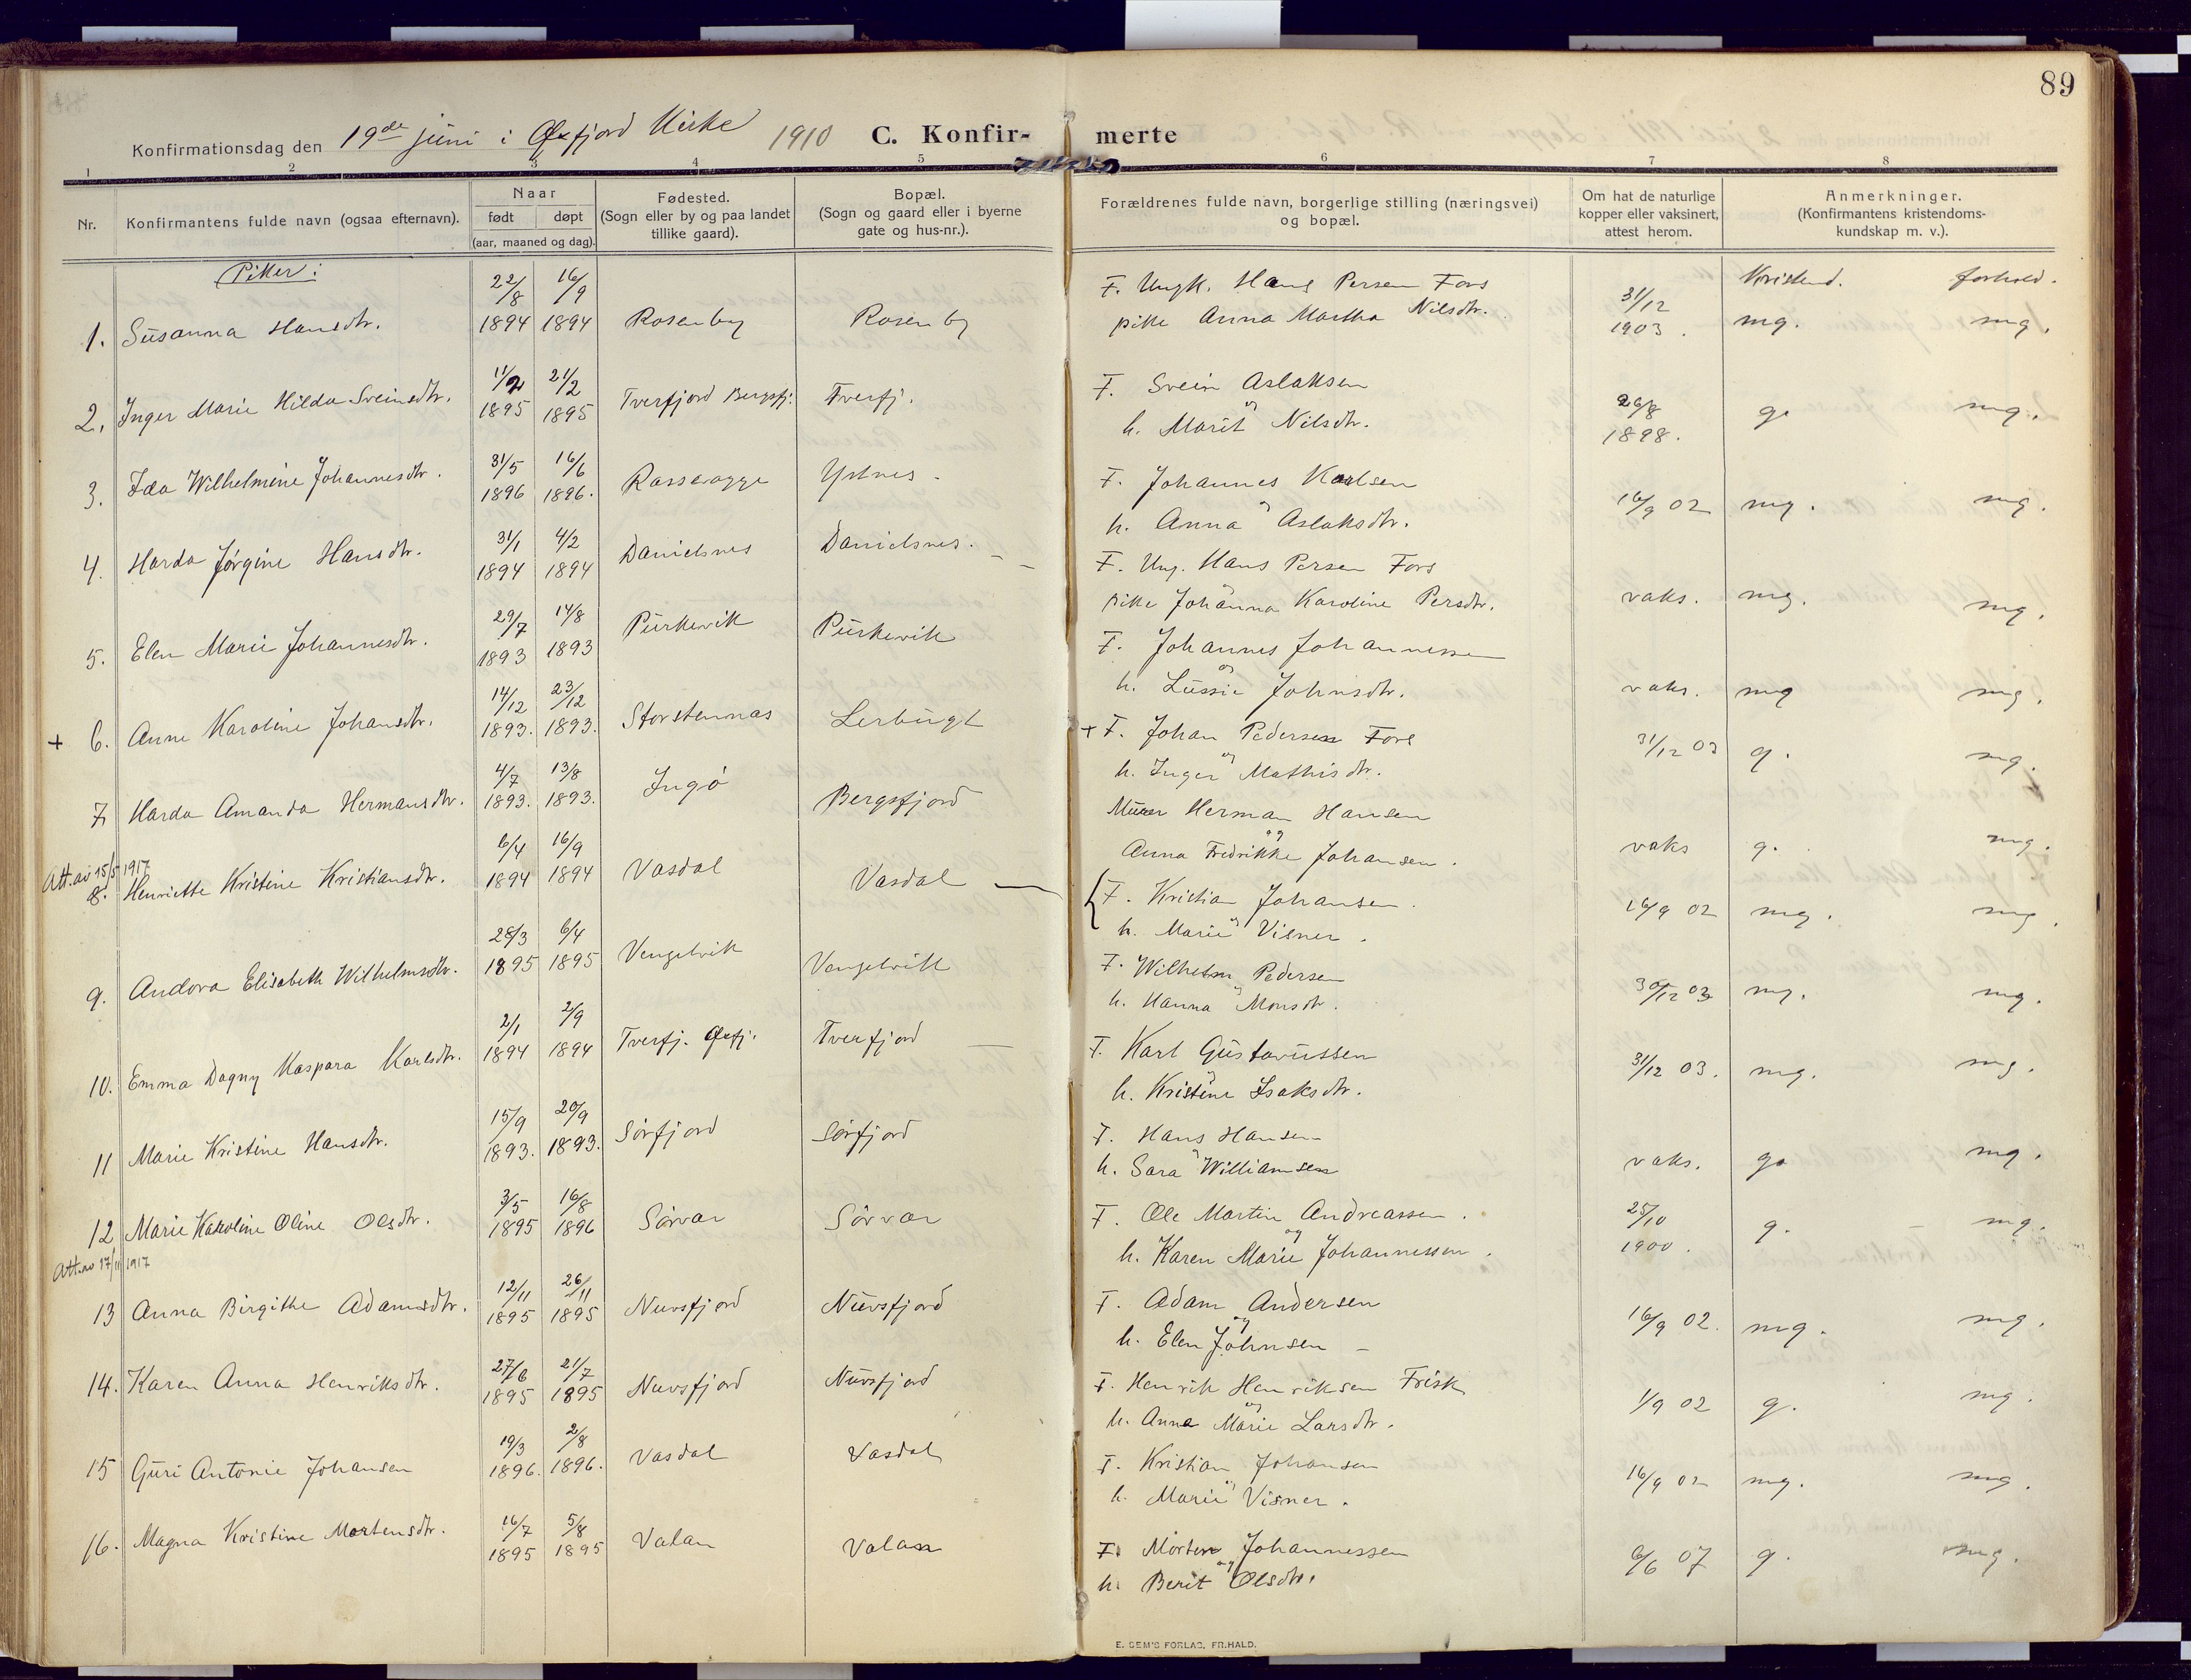 89
Konfirmationsdag den 19de juni i Øxfjord Kirke 1910 C. Konfir- merte
1 2 3 4 5 6 7 8
Nr.
Konfirmantens fulde navn (ogsaa efternavn).
Naar
født døpt
(aar, maaned og dag).
Fødested.
(Sogn eller by og paa landet
tillike gaard).
Bopæl.
(Sogn og gaard eller i byerne
gate og hus-nr.).
Forældrenes fulde navn, borgerlige stilling (næringsvei)
og bopæl.
Om hat de naturlige
kopper eller vaksinert,
attest herom.
Anmerkninger.
(Konfirmantens kristendoms-
kundskap m. v.).
Piker:
Kristend. forhold.
1. Susanna Hansdtr. 22/8 1894 16/9 1894 Rosenby Rosenby
F. Ungk. Hans Persen Fors
pike Anna Martha Nilsdtr. 31/12 1903. mg. mg.
2. Inger Marie Hilda Sveinsdtr. 11/2 1895 21/2 1895 Tverfjord Bergsfj. Tverfj.
F. Svein Aslaksen
og
h. Marit Nilsdtr. 26/8 1898. g. mg.
3. Ida Wilhelmine Johannesdtr. 31/5 1896 16/6 1896. Ystnes.
F. Johannes Karlsen
h. Anna Aslaksdtr. 16/9 02 mg. mg.
4. Harda Jørgine Hansdtr. 31/1 1894 4/2 1894 Danielsnes Danielsnes.
F. Ung. Hans Persen Fors
pike Johanna Karoline Persdtr. vaks. mg. mg.
5. Elen Marie Johannesdtr. 29/7 1893 14/8 1893 Purkevik Purkevik
F. Johannes Johannessen
og
h. Lussie Johnsdtr. vaks. mg mg.
+ 6. Anne Karoline Johansdtr. 14/12 1893. 23/12 1893. Storstennas Lerbugt
+ F. Johan Pedersen Fors
og
h. Inger Mathisdtr. 31/12 03 g. mg.
7. Harda Amanda Hermansdtr. 4/7 1893. 13/8 1893. Ingø Bergsfjord
Murer Herman Hansen
og
Anna Fredrikke Johansen. vaks g. mg.
Att. av 15/5 1917
8. Henriette Kristine Kristiansdtr. 6/4 1894 16/9 1894 Vasdal Vasdal
F. Kristian Johansen.
og
h. Marie Visner. 16/9 02 mg. mg.
9. Andora Elisabeth Wilhelmsdtr. 28/3 1895 6/4 1895 Vengelvik Vengelvik
F. Wilhelm Pedersen
h. Hanna Monsdtr. 30/12 03 mg. mg.
10. Emma Dagny Kaspara Karlsdtr. 2/1 1894 2/9 1894 Tverfj. Øxfj. Tverfjord
F. Karl Gustavussen
h. Kristine Isaksdtr. 31/12 03. mg. mg.
11 Marie Kristine Hansdtr. 15/9 1893. 20/9 1893. Sørfjord Sørfjord
F. Hans Hansen
h. Sara Williamsen vaks. g. mg.
12 Marie Karoline Oline Olsdtr. 3/5 1895 16/8 1896 Sørvær Sørvær
F. Ole Martin Andreassen.
og
h. Karen Marie Johannessen. 25/10 1900. g. mg.
Att. av 17/11 1917
13 Anna Birgithe Adamsdtr. 12/11 1895 26/11 1895 Nuvsfjord Nuvsfjord
F. Adam Andersen
og
h. Elen Johnsen 16/9 02. mg. mg.
14. Karen Anna Henriksdtr. 27/6 1895 21/7 1895 Nuvsfjord Nuvsfjord
F. Henrik Henriksen Frisk
og
h. Anna Marie Larsdtr. 1/9 02 g. mg.
15 Guri Antonie Johansen 19/3 1896. 2/8 1896. Vasdal Vasdal
F. Kristian Johansen
h. Marie Visner. 16/9 02 mg. mg.
16. Magna Kristine Mortensdtr. 16/7 1895 5/8 1895 Valan Valan
F. Morten Johannessen
og
h. Berit Olsdtr. 6/6 07 g. mg.
E. SEM'S FORLAG, FR.HALD.